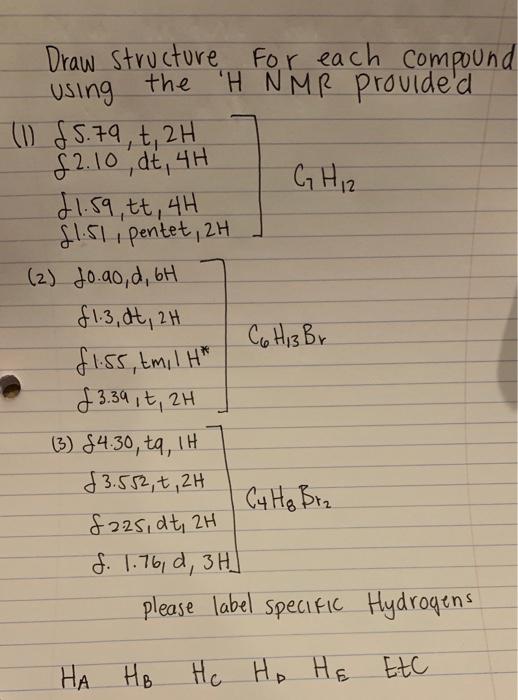 Draw structure For each compound
using the 'H NMR provided
(1) δ5.79, t, 2H
δ2.10, dt, 4H
C7H12
δ1.59, tt, 4H
δ1.51, pentet, 2H
(2) δ0.90, d, 6H
δ1.3, dt, 2H
C6H13Br
δ1.55, tm, 1H*
δ3.39, t, 2H
(3) δ4.30, tq, 1H
δ3.552, t, 2H
C4H8Br2
δ225, dt, 2H
δ. 1.76, d, 3H
please label specific Hydrogens
HA HB HC HD HE EtC